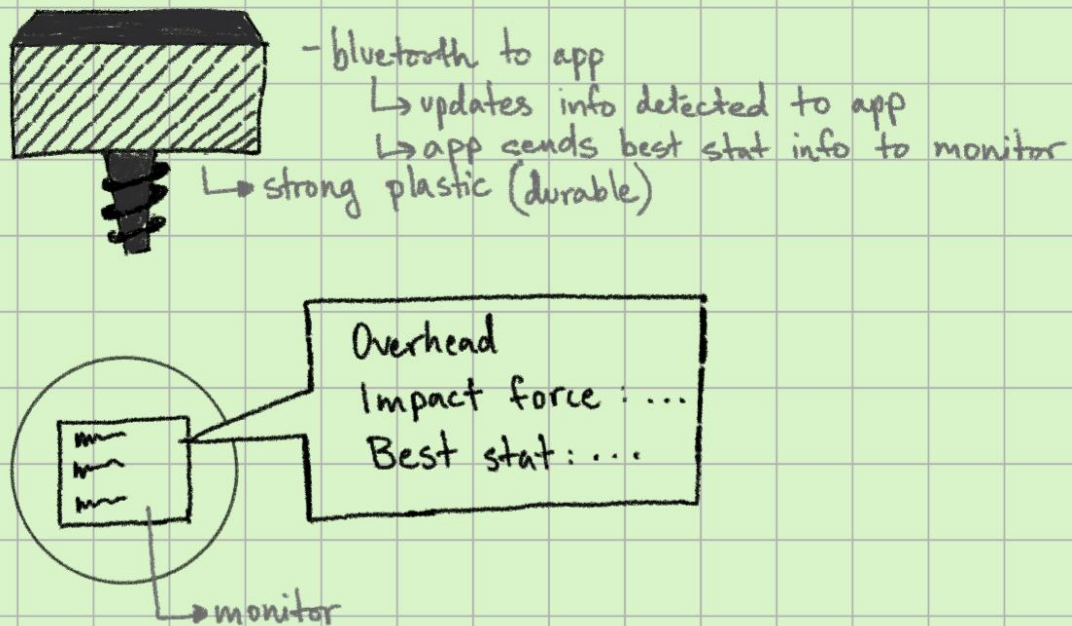 - bluetooth to app
↳ updates info detected to app
↳ app sends best stat info to monitor
↳ strong plastic (durable)
Overhead
Impact force : ...
Best stat : ...
→ monitor